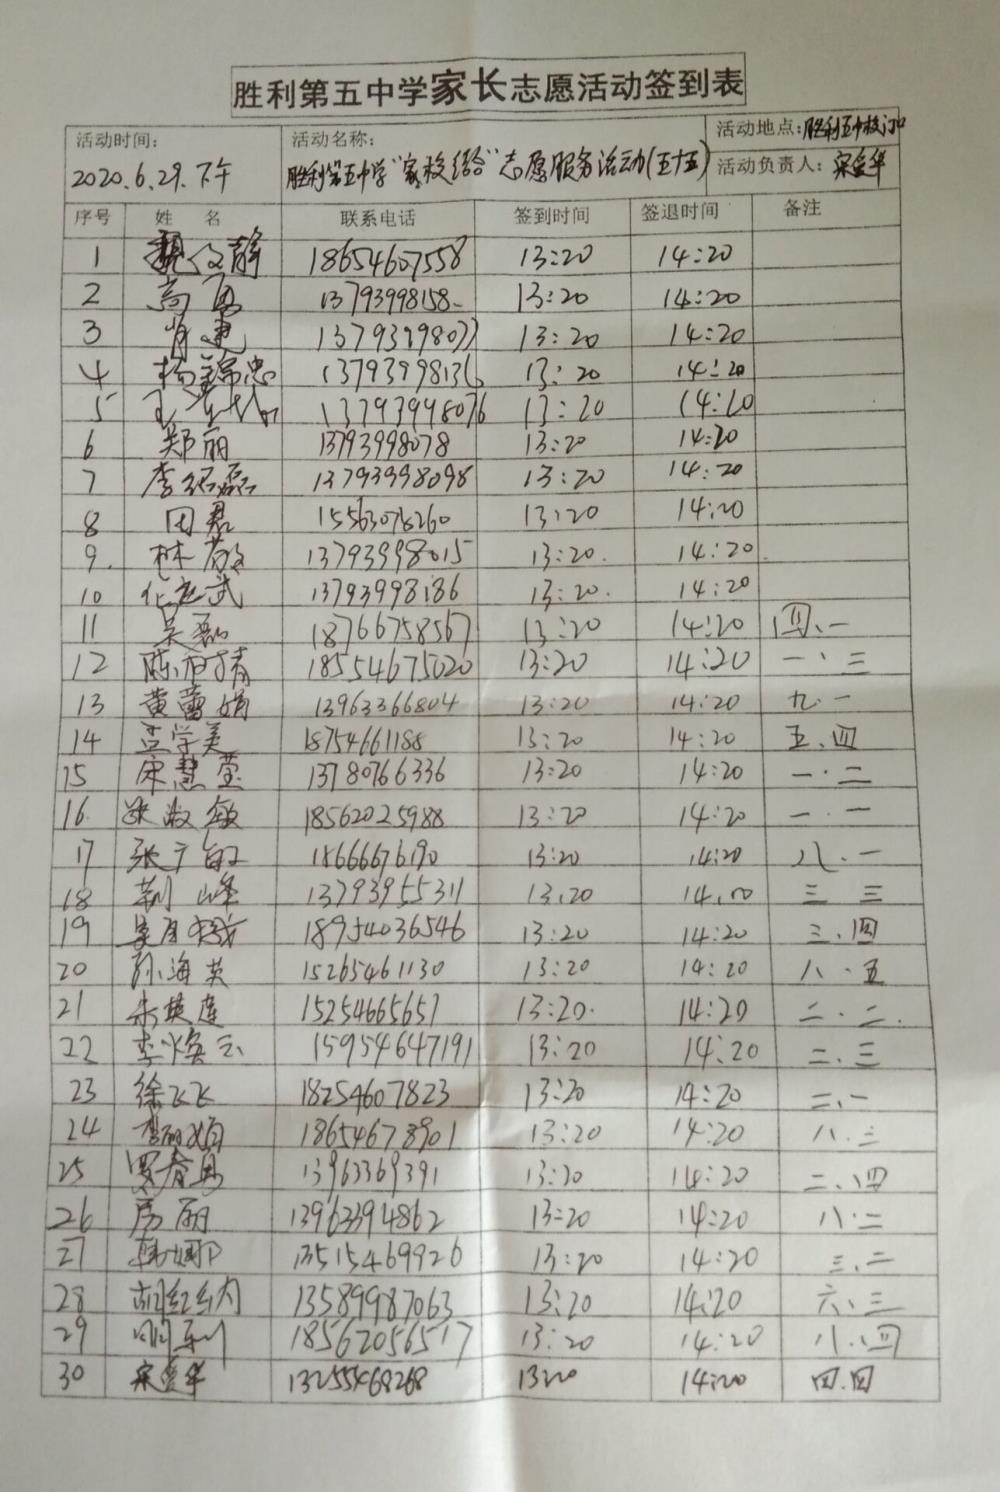 胜利第五中学家长志愿活动签到表
活动时间: 活动名称: 活动地点:胜利五中校门口
2020.6.29.下午 胜利第五中学"家校结合"志愿服务活动(五十五) 活动负责人:
序号 姓 名 联系电话 签到时间 签退时间 备注
1 魏文静 18654607558 13:20 14:20
2 高 13793998158 13:20 14:20
3 肖建 13793998077 13:20 14:20
4 杨锦忠 13793998136 13:20 14:20
5 王 13793998076 13:20 14:20
6 郑丽 13793998078 13:20 14:20
7 李绍磊 13793998098 13:20 14:20
8 田君 15563078260 13:20 14:20
9. 林敬 13793998015 13:20. 14:20.
10 武 13793998186 13:20. 14:20
11 吴磊 18766758567 13:20 14:20 四、一
12 陈 18554675020 13:20 14:20 一、三
13 黄蕾娟 13963366804 13:20 14:20 九.一
14 孟学美 18754661188 13:20 14:20 五.四
15 宋慧莹 13780766336 13:20 14:20 一.二
16. 张淑敏 18562025988 13:20 14:20 一.一
17 张广 18666676190 13:20 14:20 八.一
18 荆峰 13793955311 13:20 14:20 三 三
19 18954036546 13:20 14:20 三.四
20 孙海英 15265461130 13:20 14:20 八.五
21 朱英莲 15254665657 13:20. 14:20 二.二.
22 李焕云 15954647191 13:20 14:20 二.三
23 徐飞飞 18254607823 13:20 14:20 二.一
24 李丽娟 18654678901 13:20 14:20 八.三
25 罗春 13963369391 13:20 14:20 二.四
26 房丽 13963394862 13:20 14:20 八.二
27 韩娜 13515469926 13:20 14:20 三.二
28 胡红纳 13589987063 13:20 14:20 六.三
29 18562056517 13:20 14:20 八.四
30 13255468268 1320 14:20 四.四